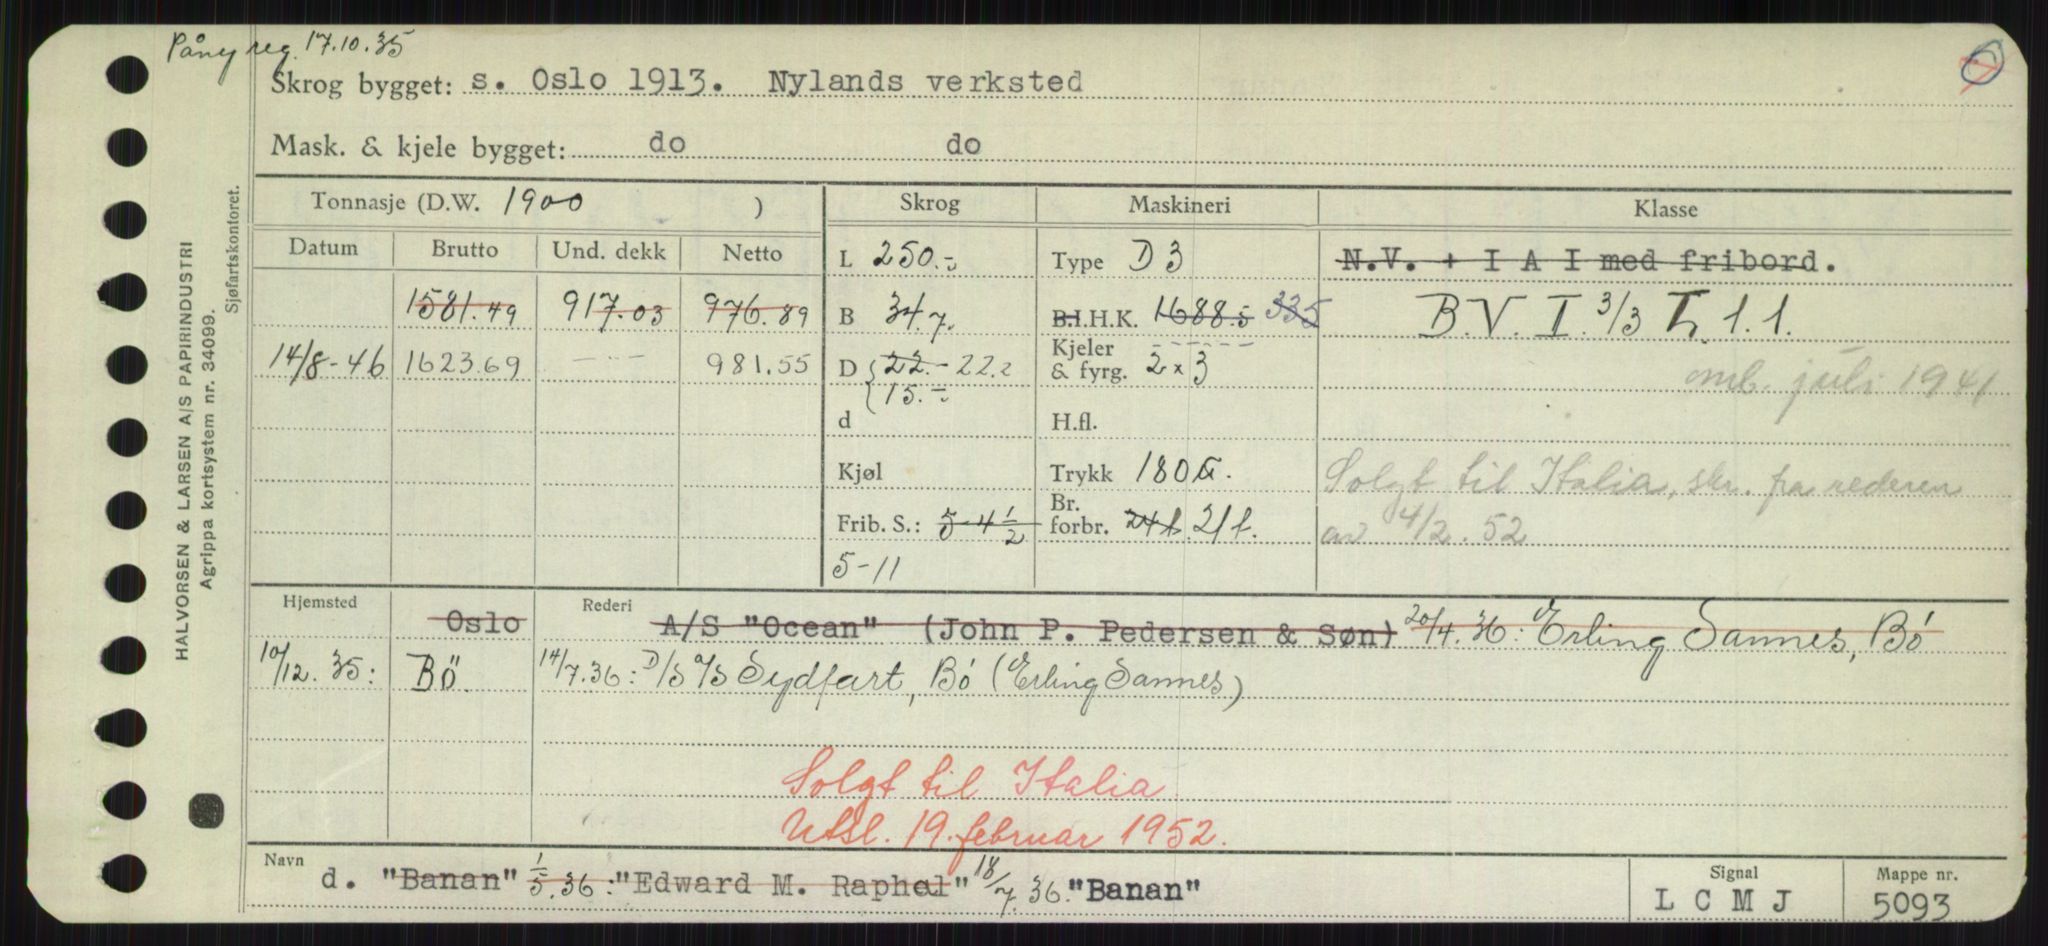 Påny reg. 17.10.35
Skrog bygget: s. Oslo 1913. Nylands verksted
Mask. & kjele bygget: do do
HALVORSEN & LARSEN A/S PAPIRINDUSTRI
Agrippa kortsystem nr. 34099.
Sjøfartskontoret.
Tonnasje (D.W. 1900 )
Skrog
Maskineri
Klasse
Datum Brutto Und. dekk Netto
1581.49 917.03 976.89
14/8-46 1623.69 - - - 981.55
L 250.-
B 34.7.
D 22.- 22.2
15.-
d
Kjøl
Frib. S.: 5-4 1/2
5-11
Type D 3
B.I.H.K. 1688.5 335
Kjeler
& fyrg. 2 x 3
H.fl.
Trykk 180
Br.
forbr. 24 t. 21 t.
N.V. + I A I med fribord.
B.V. I. 3/3 1.1.
omb. juli 1941
Solgt til Italia, skr. fra rederen
av 4/2.52
Hjemsted
Oslo
10/12.35: BÖ.
Rederi
A/S "Ocean" (John P. Pedersen & Søn) 20/4.36: Erling Sannes, Bó
14/7.36: D/S A/S Sydfart, Bó (Erling Sannes)
Solgt til Italia
Utsl. 19. februar 1952.
Navn
d. "Banan" 1/5.36: "Edward M. Raphel" 18/7.36. "Banan"
Signal
L C M J
Mappe nr.
5093